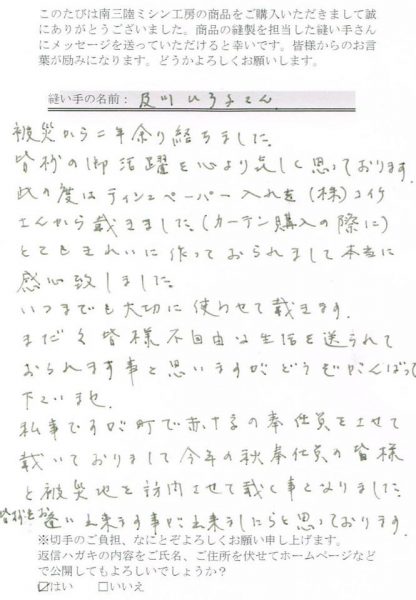 このたびは南三陸ミシン工房の商品をご購入いただきまして誠
にありがとうございました。商品の縫製を担当した縫い手さん
にメッセージを送っていただけると幸いです。皆様からのお言
葉が励みになります。どうかよろしくお願いします。
縫い手の名前： 及川ひろ子さん
被災から二年余り経ちました。
皆様の御活躍を心より嬉しく思っております。
此の度はティッシュペーパー入れを(株)コイケ
さんから戴きました。(カーテン購入の際に)
とてもきれいに作っておられまして本当に
感心致しました。
いつまでも大切に使わせて戴きます。
まだ々皆様不自由な生活を送られて
おられます事と思いますがどうぞがんばって
下さいませ。
私事ですが町で赤十字の奉仕員をさせて
戴いておりまして今年の秋奉仕員の皆様
と被災地を訪問させて戴く事となりました。
皆様とお
逢い出来ます事が出来ましたらと思っております。
※切手のご負担、なにとぞよろしくお願い申し上げます。
返信ハガキの内容をご氏名、ご住所を伏せてホームページなど
で公開してもよろしいでしょうか？
☑はい　□いいえ